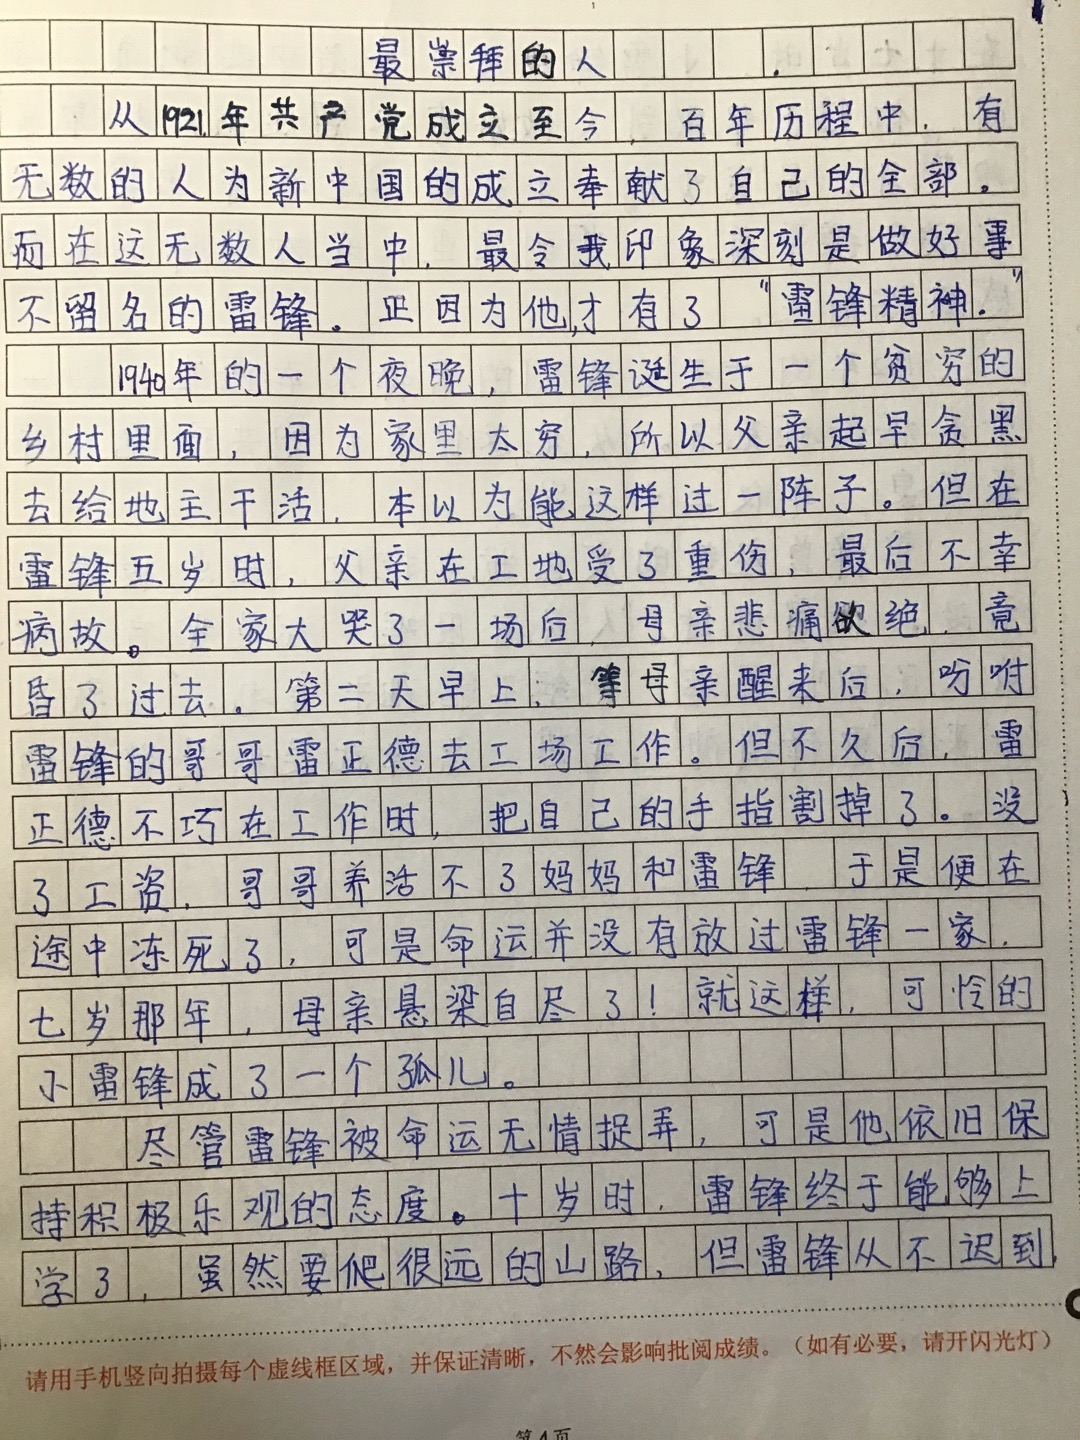 最崇拜的人
从1921年共产党成立至今，百年历程中，有
无数的人为新中国的成立奉献了自己的全部。
而在这无数人当中，最令我印象深刻是做好事
不留名的雷锋。正因为他，才有了“雷锋精神．”
1940年的一个夜晚，雷锋诞生于一个贫穷的
乡村里面，因为家里太穷，所以父亲起早贪黑
去给地主干活，本以为能这样过一阵子。但在
雷锋五岁时，父亲在工地受了重伤，最后不幸
病故。全家大哭了一场后，母亲悲痛欲绝，竟
昏了过去。第二天早上，等母亲醒来后，吩咐
雷锋的哥哥雷正德去工场工作。但不久后，雷
正德不巧在工作时，把自己的手指割掉了。没
了工资，哥哥养活不了妈妈和雷锋，于是便在
途中冻死了，可是命运并没有放过雷锋一家，
七岁那年，母亲悬梁自尽了！就这样，可怜的
小雷锋成了一个孤儿。
尽管雷锋被命运无情捉弄，可是他依旧保
持积极乐观的态度。十岁时，雷锋终于能够上
学了，虽然要爬很远的山路，但雷锋从不迟到，
请用手机竖向拍摄每个虚线框区域，并保证清晰，不然会影响批阅成绩。（如有必要，请开闪光灯）
第4页